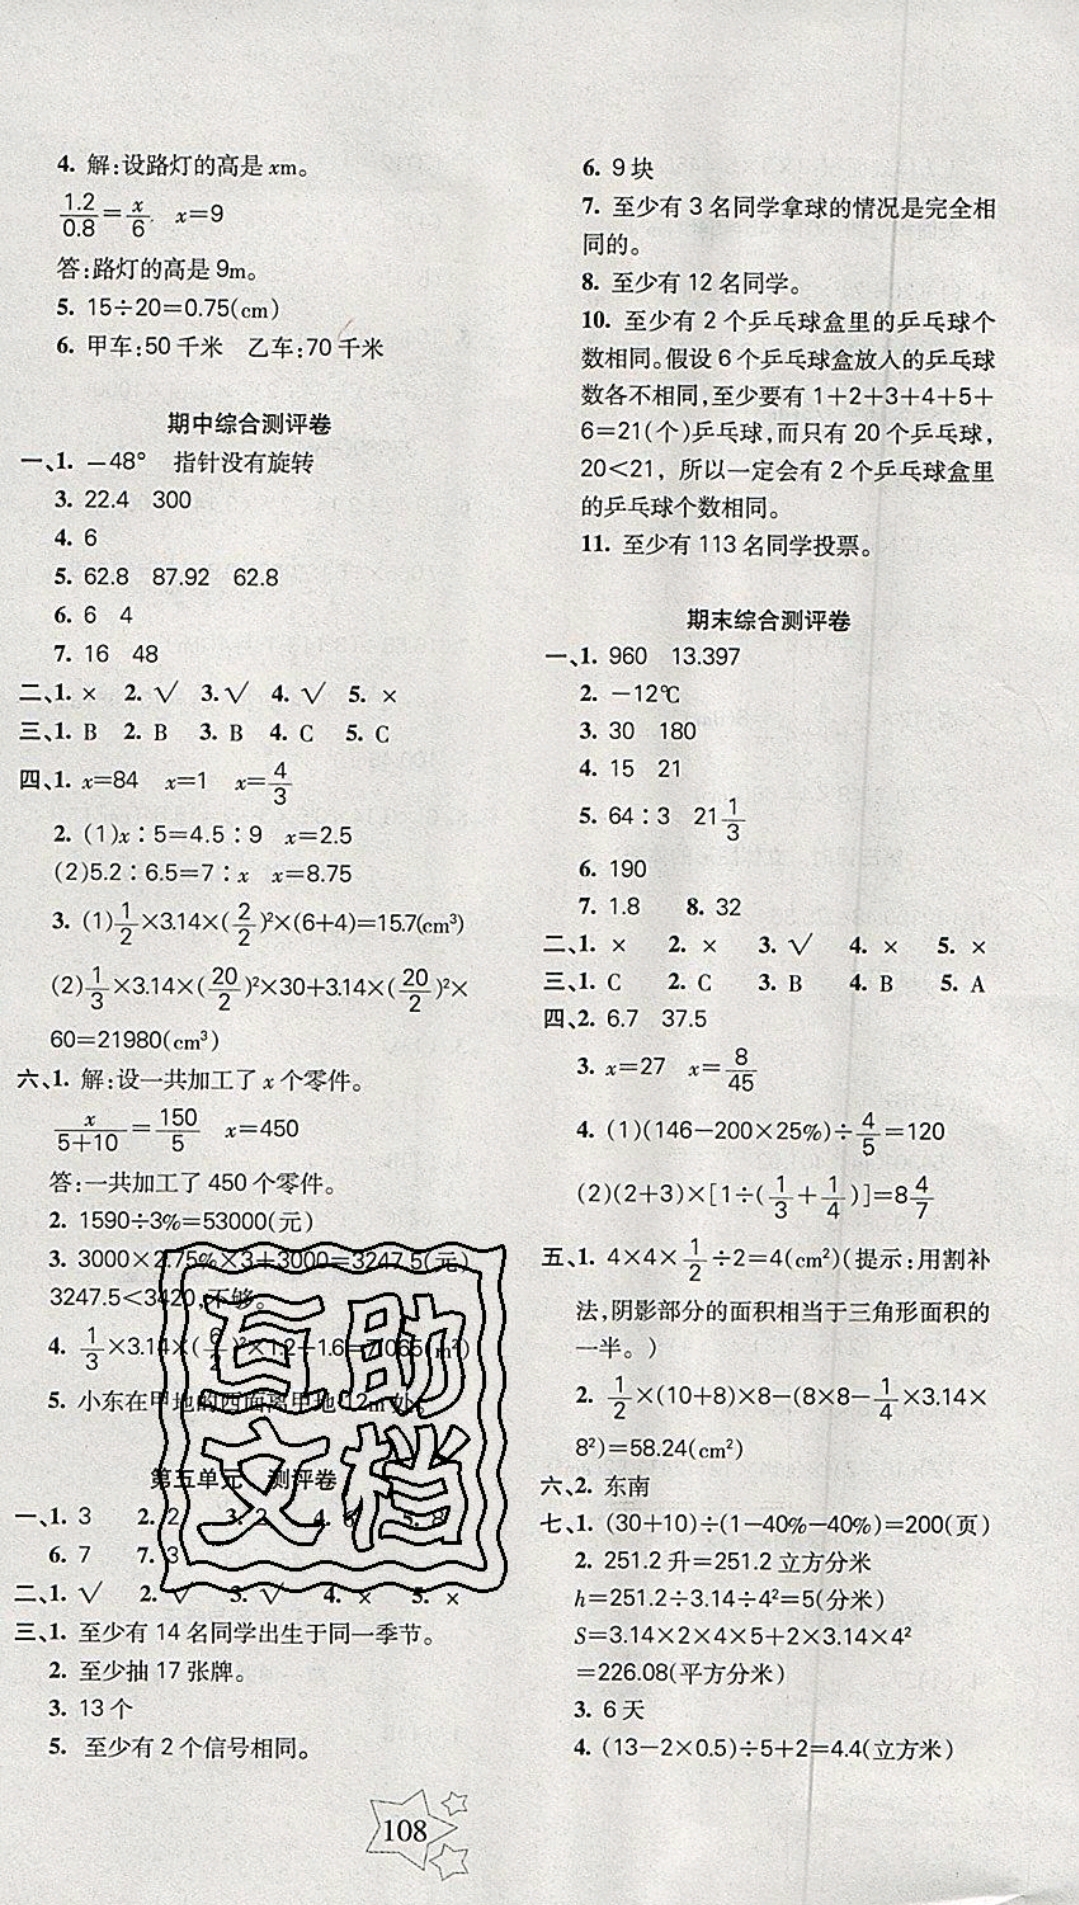 4. 解:设路灯的高是 xm。
1.2/0.8=x/6. x=9
答:路灯的高是 9m。
5. 15÷20=0.75(cm)
6. 甲车:50 千米 乙车:70 千米
期中综合测评卷
一、1. —48° 指针没有旋转
3. 22.4 300
4. 6
5. 62.8 87.92 62.8
6. 6 4
7. 16 48
二、1. × 2. √ 3. √ 4. √ 5. ×
三、1. B 2. B 3. B 4. C 5. C
四、1. x=84 x=1 x=4/3
2. (1)x∶5=4.5∶9 x=2.5
(2)5.2∶6.5=7∶x x=8.75
3. (1)1/2×3.14×(2/2)²×(6+4)=15.7(cm³)
(2)1/3×3.14×(20/2)²×30+3.14×(20/2)²×
60=21980(cm³)
六、1. 解:设一共加工了 x 个零件。
x/5+10=150/5 x=450
答:一共加工了 450 个零件。
2. 1590÷3%=53000(元)
3. 3000×2.75%×3+3000=3247.5(元)
3247.5<3420,不够。
4. 1/3×3.14×(6/2)²×1.2÷1.6=7.065(m²)
5. 小东在甲地的西面离甲地 12m 处。
互助
文档
第五单元 测评卷
一、1. 3 2. 2 3. 2 4. 6 5. 8
6. 7 7. 3
二、1. √ 2. √ 3. √ 4. × 5. ×
三、1. 至少有 14 名同学出生于同一季节。
2. 至少抽 17 张牌。
3. 13 个
5. 至少有 2 个信号相同。
6. 9 块
7. 至少有 3 名同学拿球的情况是完全相
同的。
8. 至少有 12 名同学。
10. 至少有 2 个乒乓球盒里的乒乓球个
数相同。假设 6 个乒乓球盒放入的乒乓球
数各不相同,至少要有 1+2+3+4+5+
6=21(个)乒乓球,而只有 20 个乒乓球,
20<21, 所以一定会有 2 个乒乓球盒里
的乒乓球个数相同。
11. 至少有 113 名同学投票。
期末综合测评卷
一、1. 960 13.397
2. —12℃
3. 30 180
4. 15 21
5. 64∶3 21 1/3
6. 190
7. 1.8 8. 32
二、1. × 2. × 3. √ 4. × 5. ×
三、1. C 2. C 3. B 4. B 5. A
四、2. 6.7 37.5
3. x=27 x=8/45
4. (1)(146—200×25%)÷4/5=120
(2)(2+3)×[1÷(1/3+1/4)]=8 4/7
五、1. 4×4×1/2÷2=4(cm²)(提示:用割补
法,阴影部分的面积相当于三角形面积的
一半。)
2. 1/2×(10+8)×8—(8×8—1/4×3.14×
8²)=58.24(cm²)
六、2. 东南
七、1. (30+10)÷(1—40%—40%)=200(页)
2. 251.2 升=251.2 立方分米
h=251.2÷3.14÷4²=5(分米)
S=3.14×2×4×5+2×3.14×4²
=226.08(平方分米)
3. 6 天
4. (13—2×0.5)÷5+2=4.4(立方米)
108